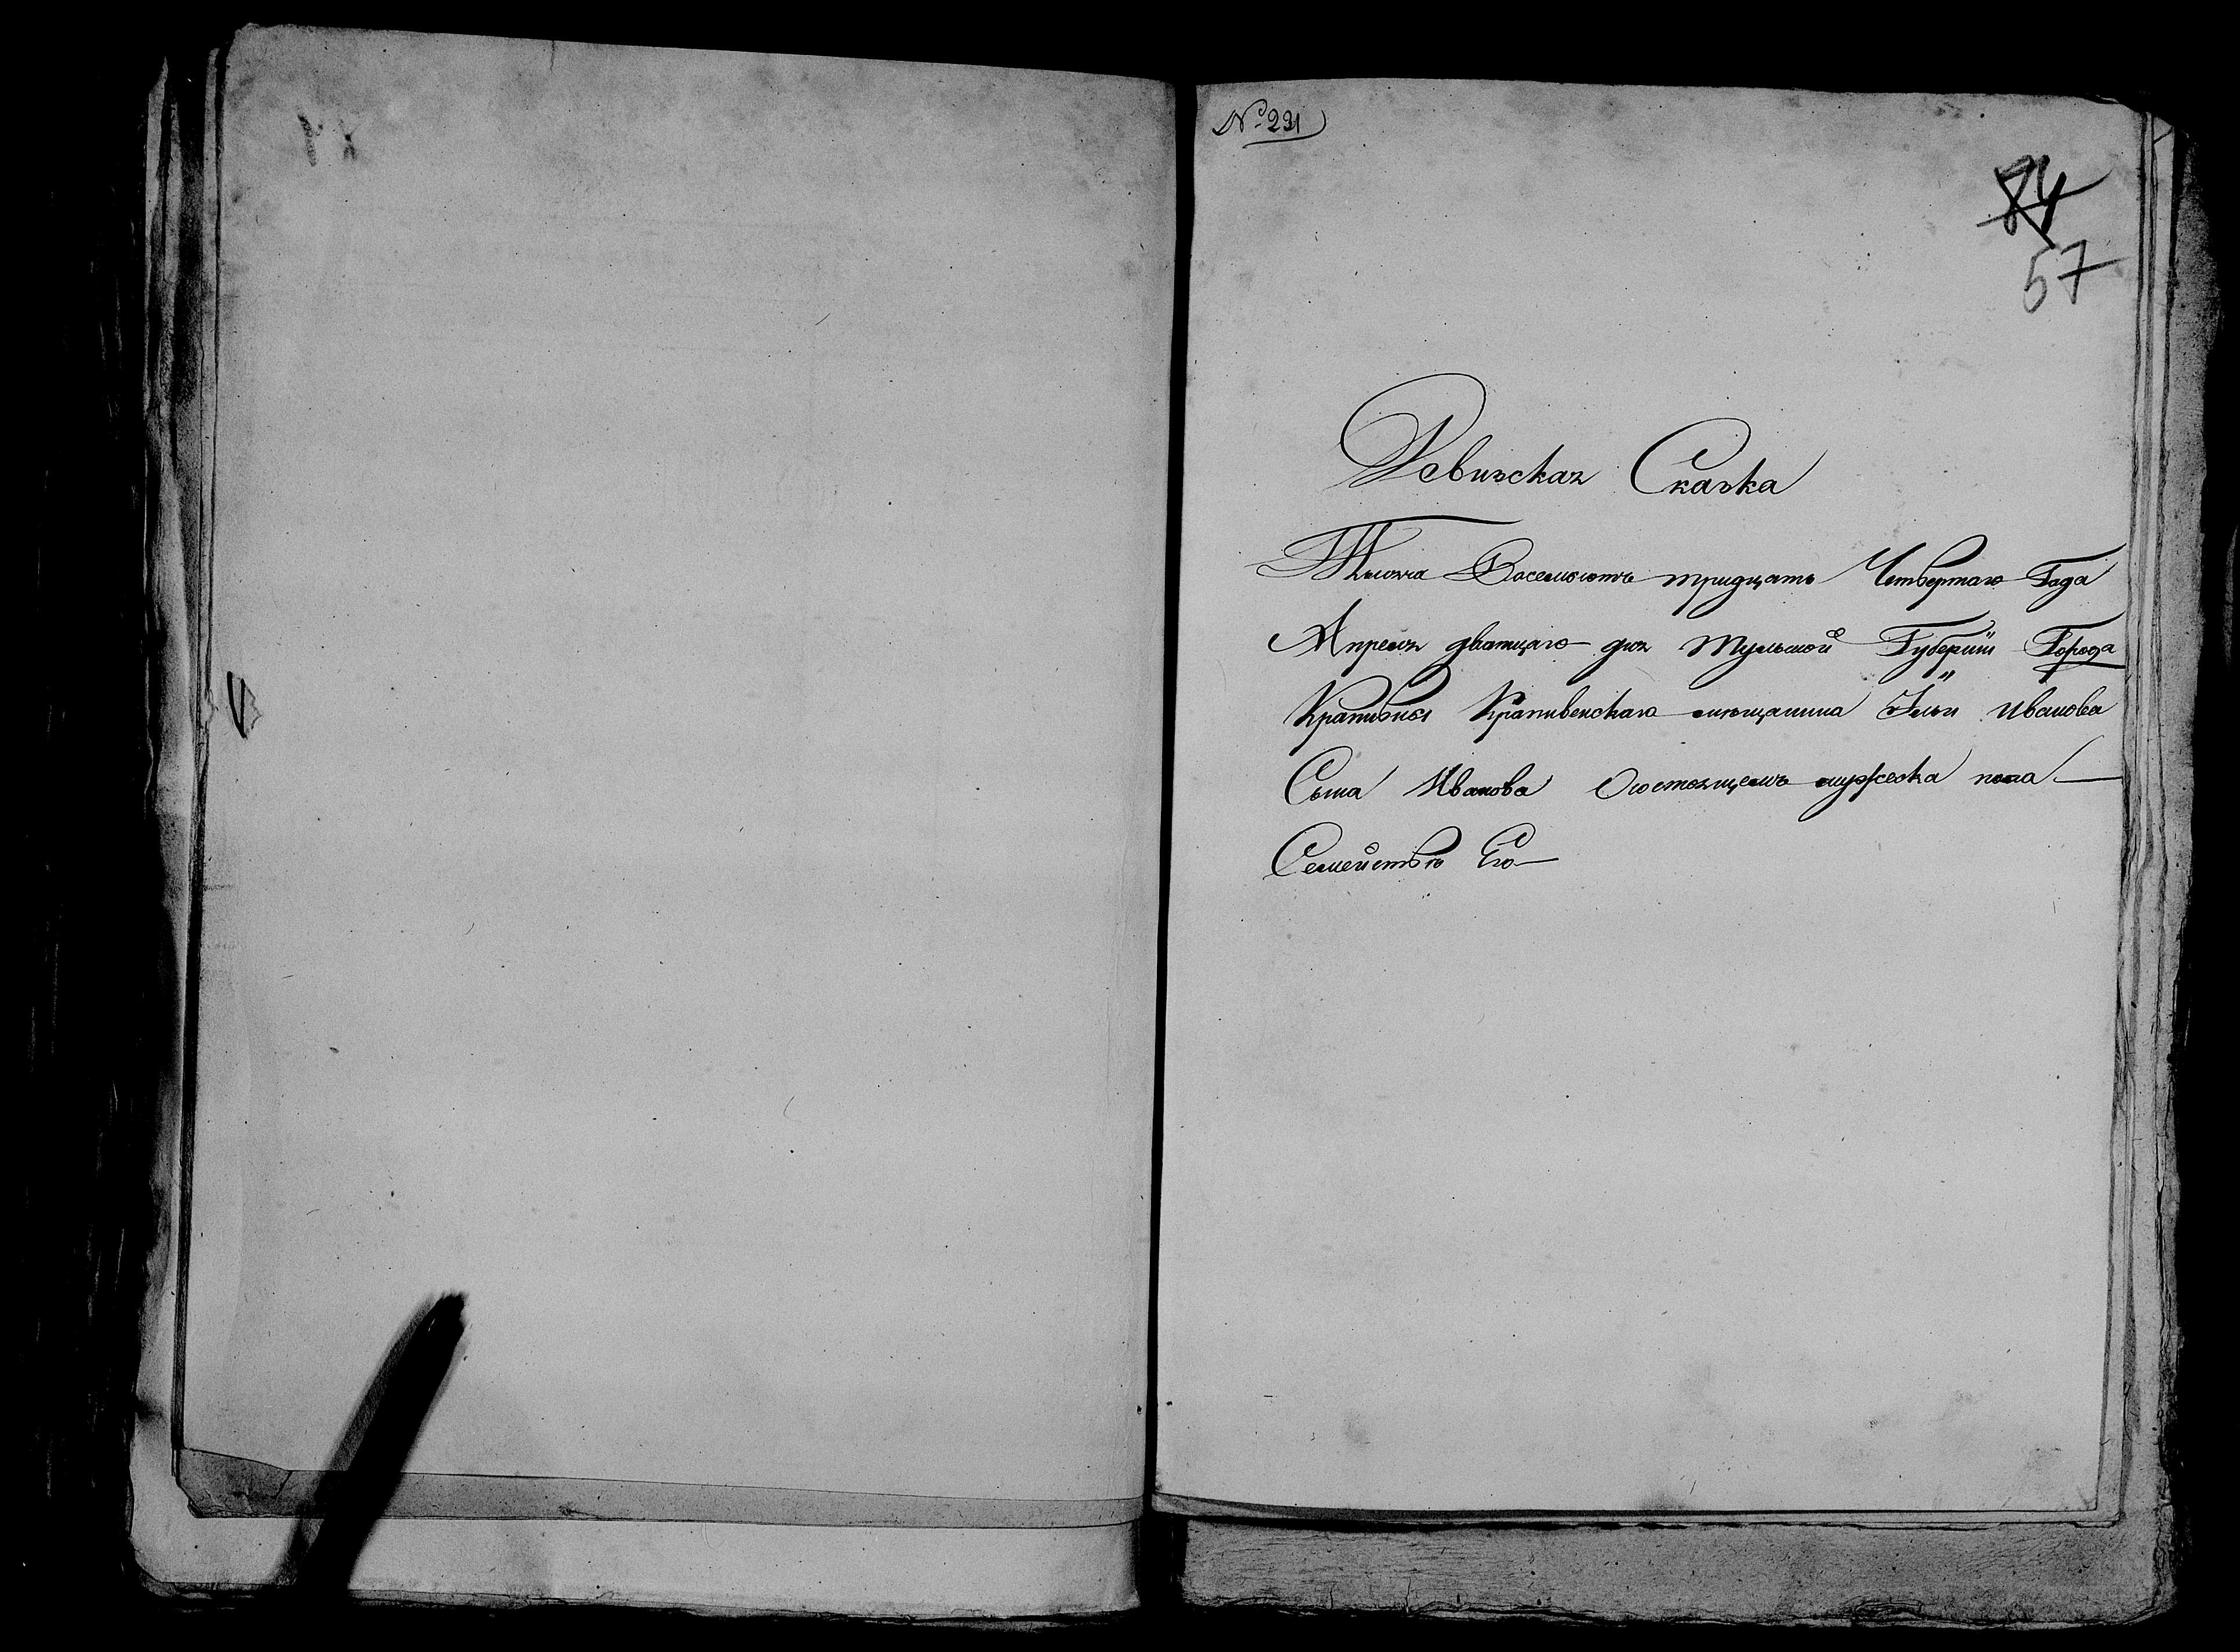 № 291
84
57
Ревизская Сказка
Тысяча Восемьсотъ тридцать Четвертаго Года
Апреля дватцаго дня Тульской Губернiи Города
Крапивны Крапивенскаго мещанина Ильи Иванова
Сына Иванова О состоящемъ мужеска пола
Семействе Его